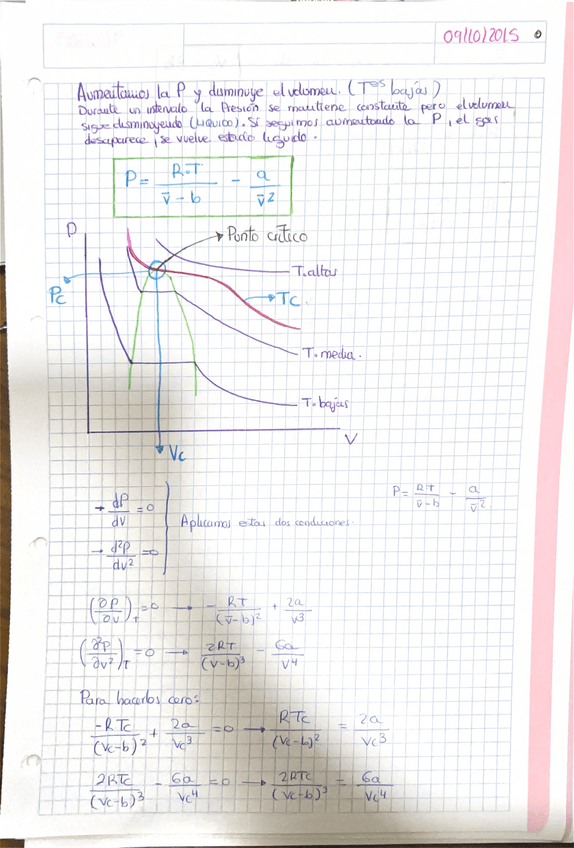 09/10/2015
Aumentamos la P y disminuye el volumen. (Tªs bajas)
Durante un intervalo la Presión se mantiene constante pero el volumen
sigue disminuyendo (LIQUIDO). Si seguimos aumentando la P, el gas
desaparece, se vuelve estado líquido.
P = R·T / (v̄ - b) - a / v̄²
P
Punto crítico
T. altas
Pc
Tc
T. media.
T. bajas
V
Vc
P = RT / (v̄ - b) - a / v̄²
→ dP/dV = 0
Aplicamos estas dos condiciones.
→ d²P/dv² = 0
(∂P/∂V)T = 0 → - RT/(v̄-b)² + 2a/v³
(∂²P/∂v²)T = 0 → 2RT/(v-b)³ - 6a/v⁴
Para hacerlos cero:
-RTc/(Vc-b)² + 2a/Vc³ = 0 → RTc/(Vc-b)² = 2a/Vc³
2RTc/(Vc-b)³ - 6a/Vc⁴ = 0 → 2RTc/(Vc-b)³ = 6a/Vc⁴